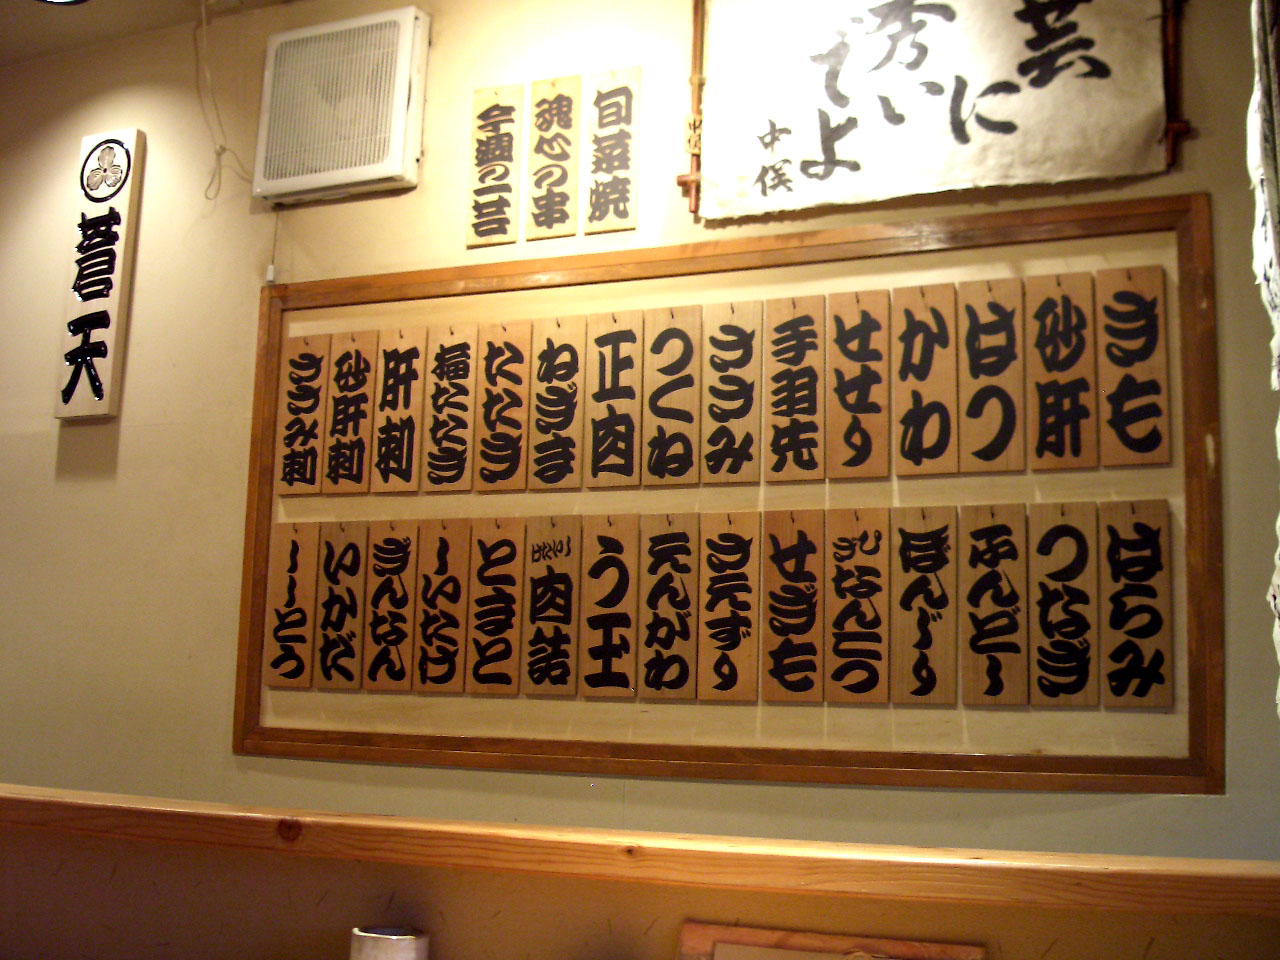 芸
に
誘い
でよ
中俣
旬菜焼
魂心の串
今週の一芸
きも
砂肝
はつ
かわ
せせり
手羽先
ささみ
つくね
正肉
ねぎま
たたき
福たたき
肝刺
砂肝刺
ささみ刺
はらみ
つなぎ
ふんどし
ぼんじり
なんこつ
せぎも
さえずり
えんがわ
うづ玉
しいたけ肉詰
とまと
しいたけ
ぎんなん
いかだ
ししとう